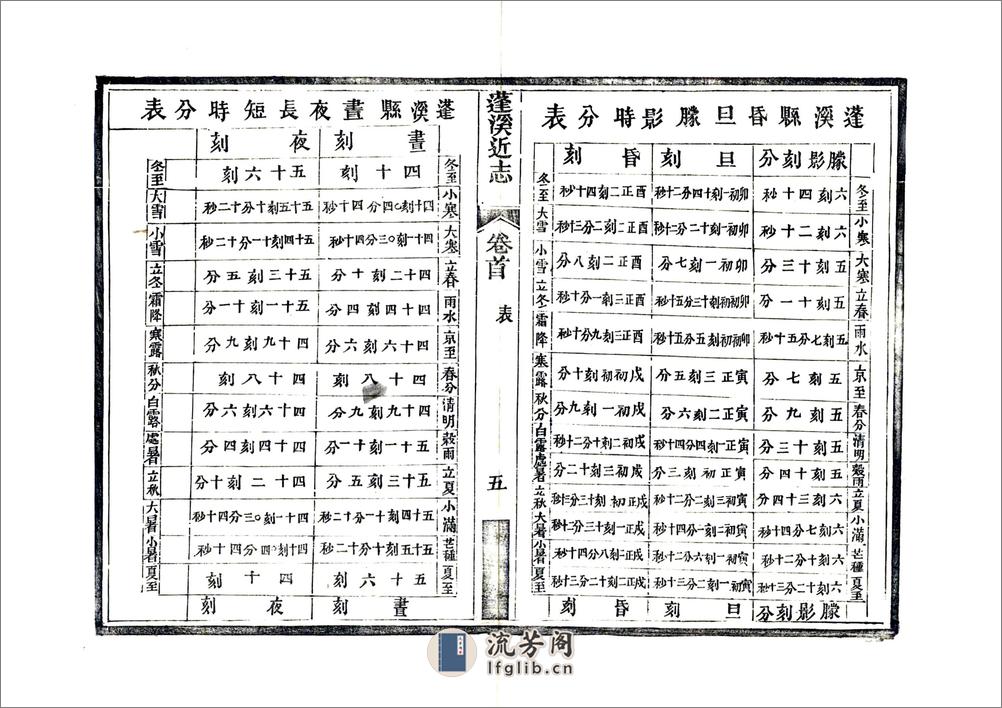 蓬溪縣昏旦朦影時分表
朦影刻分 旦刻 昏刻
冬至 六刻十四秒 卯初一刻十四分二十秒 酉正二刻十四秒 冬至
小寒 六刻二十秒 卯初一刻十二分二十秒 酉正二刻二分三十秒 大雪
大寒 五刻十三分 卯初一刻七分 酉正二刻八分 小雪
立春 五刻十一分 卯初初刻十三分五十秒 酉正三刻一分十秒 立冬
雨水 五刻七分五十秒 卯初初刻五分五十秒 酉正三刻九分十秒 霜降
京至 五刻七分 寅正三刻五分 戌初初刻十分 寒露
春分 五刻九分 寅正二刻六分 戌初一刻九分 秋分
清明 五刻十三分 寅正一刻四分四十秒 戌初二刻十分二十秒 白露
穀雨 五刻十四分 寅正初刻三分 戌初三刻十二分 處暑
立夏 六刻三十四分 寅初三刻二分二十秒 戌正初刻十三分三秒 立秋
小滿 六刻七分四十秒 寅初二刻一分四十秒 戌正一刻十三分二秒 大暑
芒種 六刻十二分二十秒 寅初一刻六分二十秒 戌正二刻八分四十秒 小暑
夏至 六刻十二分三十秒 寅初一刻二分二十秒 戌正二刻十二分三十秒 夏至
朦影刻分 旦刻 昏刻
蓬溪近志
卷首
表
五
蓬溪縣晝夜長短時分表
晝刻 夜刻
冬至 四十刻 五十六刻 冬至
小寒 四十刻〇四分四十秒 五十五刻十分二十秒 大雪
大寒 四十一刻〇三分四十秒 五十四刻十一分二十秒 小雪
立春 四十二刻十分 五十三刻五分 立冬
雨水 四十四刻四分 五十一刻十一分 霜降
京至 四十六刻六分 四十九刻九分 寒露
春分 四十八刻 四十八刻 秋分
清明 四十九刻九分 四十六刻六分 白露
穀雨 五十一刻十一分 四十四刻四分 處暑
立夏 五十三刻五分 四十二刻十分 立秋
小滿 五十四刻十一分二十秒 四十一刻〇三分四十秒 大暑
芒種 五十五刻十分二十秒 四十刻〇四分四十秒 小暑
夏至 五十六刻 四十刻 夏至
晝刻 夜刻
流芳阁
lfglib.cn